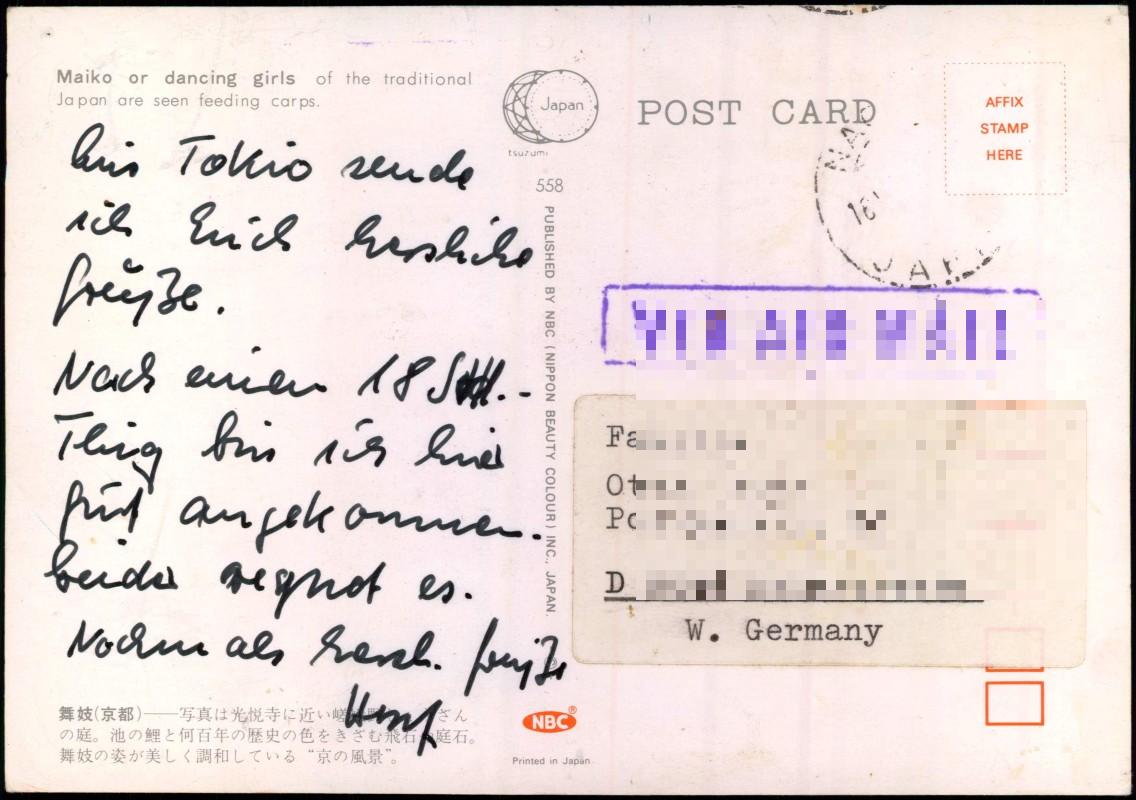 Maiko or dancing girls of the traditional
Japan are seen feeding carps.
Aus Tokio sende
ich Euch herzliche
Grüße.
Nach einem 18 Std.-
Flug bin ich hier
gut angekommen.
Leider regnet es.
Nochmals herzl. Grüße
舞妓(京都)——写真は光悦寺に近い嵯
さん
の庭。池の鯉と何百年の歴史の色をきざむ飛石
庭石。
舞妓の姿が美しく調和している“京の風景”。
Japan
tsuzumi
558
PUBLISHED BY NBC (NIPPON BEAUTY COLOUR) INC., JAPAN.
NBC®
Printed in Japan
POST CARD
AFFIX
STAMP
HERE
16
JAP
VIA AIR MAIL
W. Germany